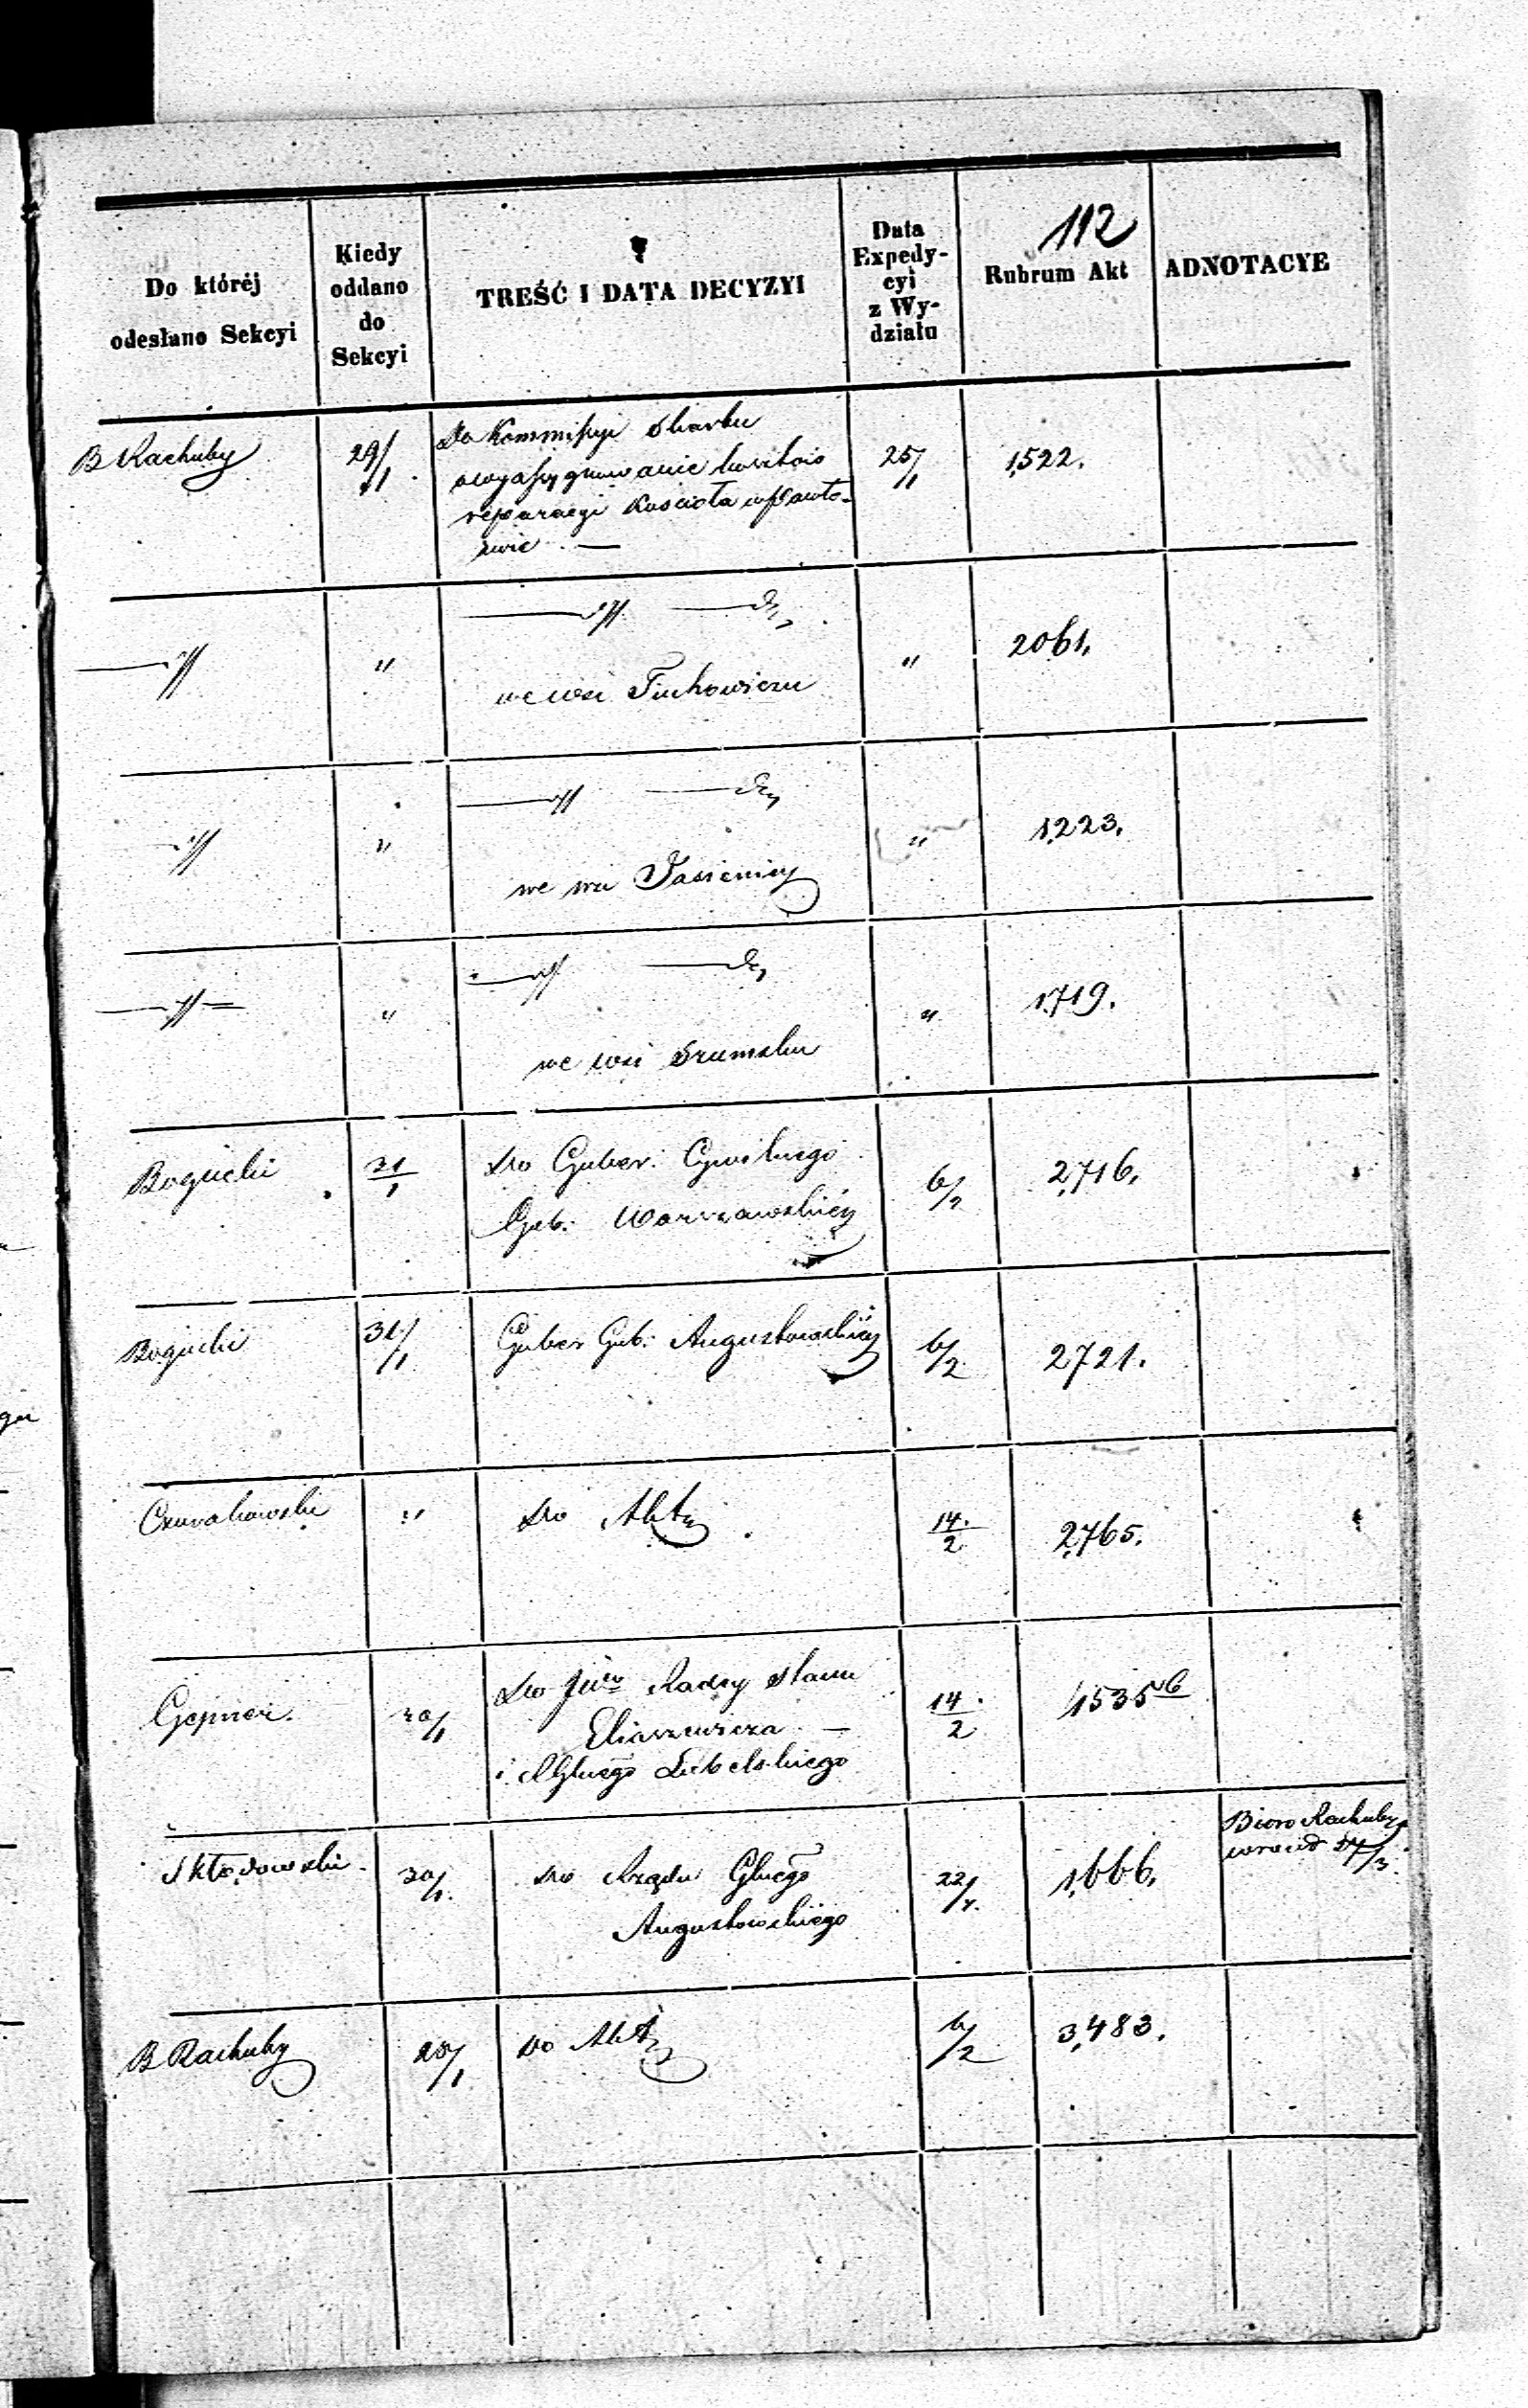 112
Do któréj
odesłano Sekcyi
Kiedy
oddano
do
Sekcyi
TREŚĆ I DATA DECYZYI
Data
Expedy-
cyi
z Wy-
działu
Rubrum Akt
ADNOTACYE
B Rachuby
29/1
Do Kommissyi Skarbu
owyassygnowanie kosztów
reparacyi Kościoła
25/1
1,522.
"
we wsi
"
2061.
"
we wsi Jasienicy
"
1,223.
"
we wsi Szumsku
"
1,719.
Boguchi
31/1
Do Guber. Cywilnego
Gub. Warszawskiéj
6/2
2,716.
Boguchi
31/1
Guber Gub. Augustowskiéj
6/2
2721.
"
Do Akt
14/2
2,765.
Gepner.
30/1
Do Radcy Stanu
Eliaszewicza —
i RGłnego Lubelskiego
14/2
Skłodowski
30/1
Do Rządu Głnego
Augustowskiégo
1,666.
Bioro Rachuby
B Rachuby
Do Akt
6/2
3,483.